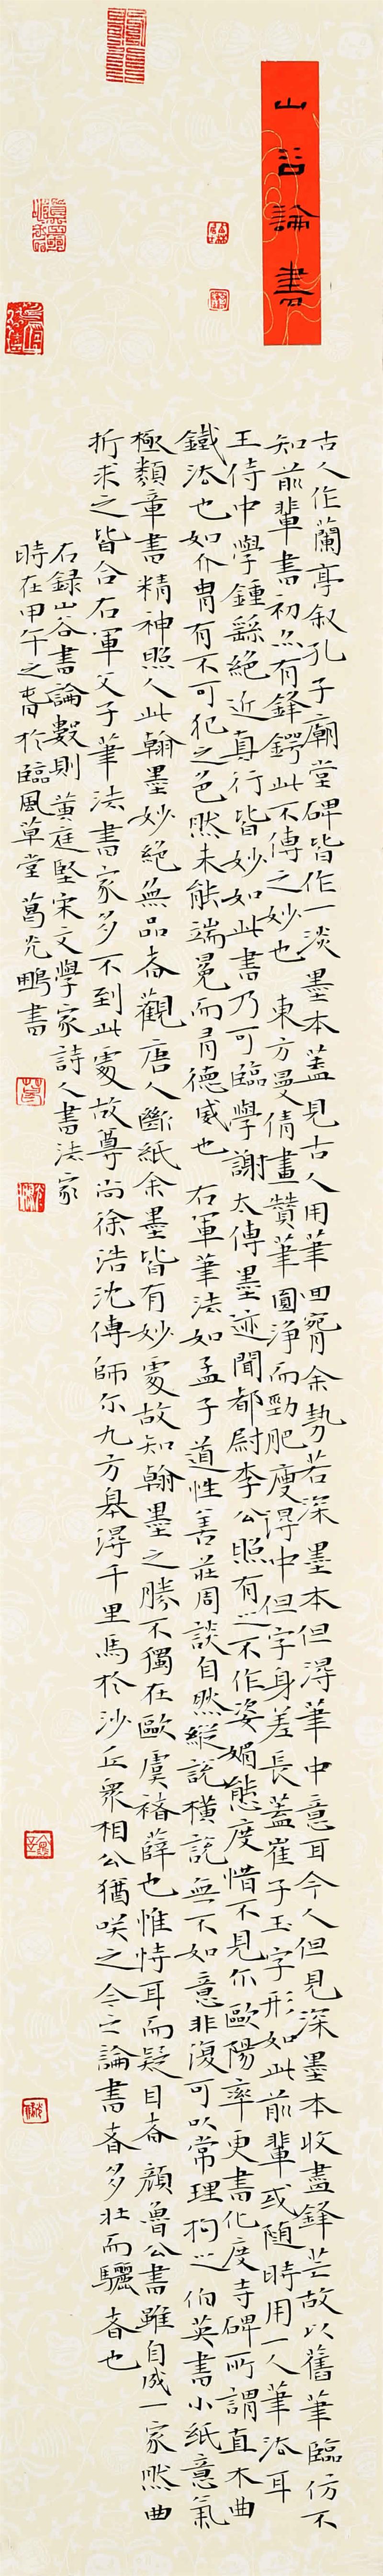 山谷論書
古人作蘭亭叙孔子廟堂碑皆作一淡墨本蓋見古人用筆回腕余勢若深墨本但得筆中意耳今人但見深墨本收盡鋒芒故以舊筆臨仿不
知前輩書初亦有鋒鍔此不傳之妙也 東方曼倩畫贊筆圓淨而勁肥瘦得中但字身差長蓋崔子玉字形如此前輩或隨時用一人筆法耳
王侍中學鍾繇絕近真行皆妙如此書乃可臨學謝太傅墨迹聞都尉李公照有之不作姿媚態度惜不見尔歐陽率更書化度寺碑所謂直木曲
鐵法也如介冑有不可犯之色然未能端冕而有德威也 右軍筆法如孟子道性善莊周談自然縱說橫說無不如意非復可以常理拘之伯英書小紙意氣
極類章書精神照人此翰墨妙絕無品者觀唐人斷紙余墨皆有妙處故知翰墨之勝不獨在歐虞褚薛也惟恃耳而疑目者 顏魯公書雖自成一家然曲
折求之皆合右軍父子筆法書家多不到此處故尊尚徐浩沈傳師尔九方皋得千里馬於沙丘衆相公猶咲之今之論書者多牡而驪者也
右錄山谷書論數則黃庭堅宋文學家詩人書法家
時在甲午之春於臨風草堂 葛光鵬書